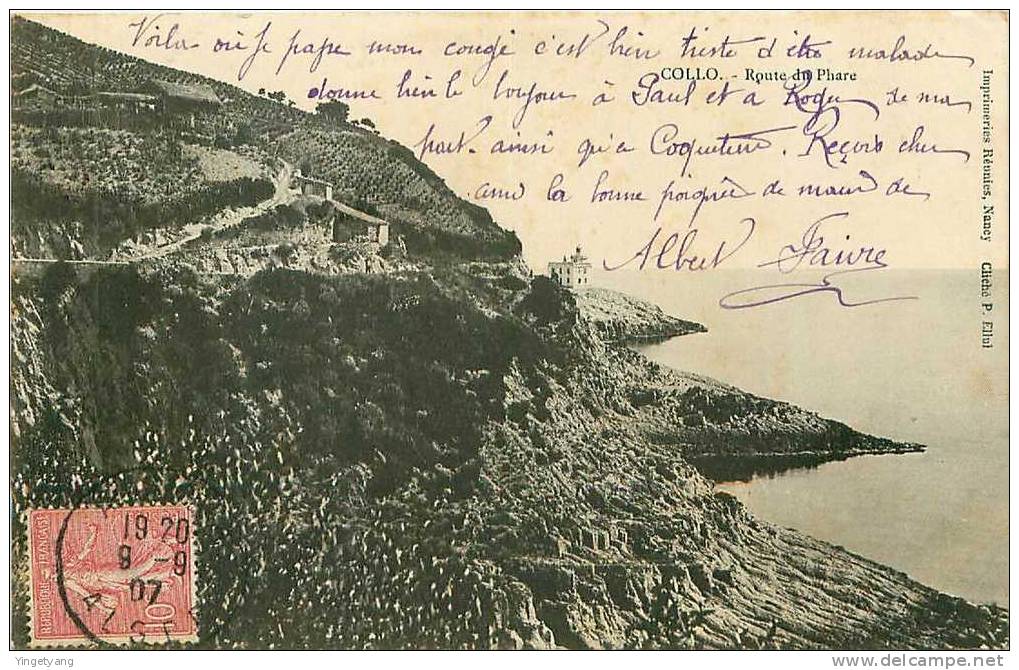 Voila où je passe mon congé c'est bien triste d'être malade
donne bien le bonjour à Paul et a Roger de ma
part. ainsi qu'a Recois cher
ami la bonne poignée de main de
Albert Faivre
COLLO. - Route du Phare
Imprimeries Réunies, Nancy Cliché P. Ellul
REPUBLIQUE FRANÇAISE
10
19 20
9 -9
07
Yingetyang
delcampe.net